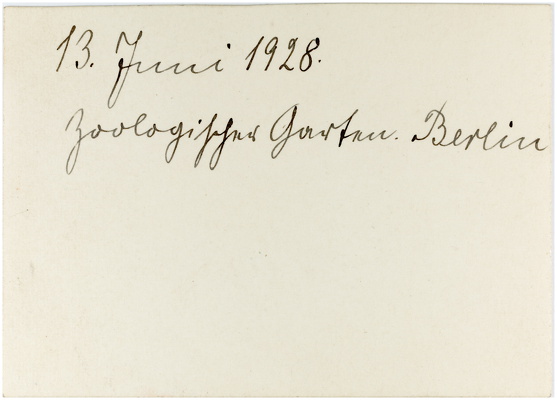 13. Juni 1928.
Zoologischer Garten. Berlin